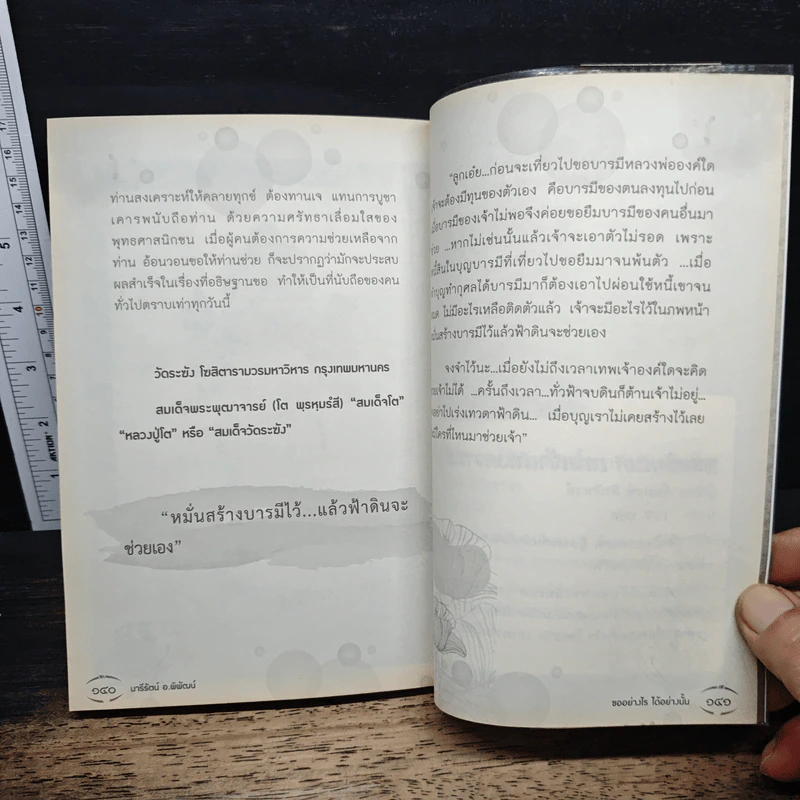 ท่านสงเคราะห์ให้คลายทุกข์ ต้องทานเจ แทนการบูชา
เคารพนับถือท่าน ด้วยความศรัทธาเลื่อมใสของ
พุทธศาสนิกชน เมื่อผู้คนต้องการความช่วยเหลือจาก
ท่าน อ้อนวอนขอให้ท่านช่วย ก็จะปรากฏว่ามักจะประสบ
ผลสำเร็จในเรื่องที่อธิษฐานขอ ทำให้เป็นที่นับถือของคน
ทั่วไปตราบเท่าทุกวันนี้
วัดระฆัง โฆสิตารามวรมหาวิหาร กรุงเทพมหานคร
สมเด็จพระพุฒาจารย์ (โต พฺรหฺมรํสี) “สมเด็จโต”
“หลวงปู่โต” หรือ “สมเด็จวัดระฆัง”
“หมั่นสร้างบารมีไว้...แล้วฟ้าดินจะ
ช่วยเอง”
๑๔๐ นารีรัตน์ อ.พิพัฒน์
“ลูกเอ๋ย...ก่อนจะเที่ยวไปขอบารมีหลวงพ่อองค์ใด
จ้าจะต้องมีทุนของตัวเอง คือบารมีของตนลงทุนไปก่อน
มื่อบารมีของเจ้าไม่พอจึงค่อยขอยืมบารมีของคนอื่นมา
ช่วย ...หากไม่เช่นนั้นแล้วเจ้าจะเอาตัวไม่รอด เพราะ
หนี้สินในบุญบารมีที่เที่ยวไปขอยืมมาจนพ้นตัว ...เมื่อ
ทำบุญทำกุศลได้บารมีมาก็ต้องเอาไปผ่อนใช้หนี้เขาจน
มด ไม่มีอะไรเหลือติดตัวแล้ว เจ้าจะมีอะไรไว้ในภพหน้า
มั่นสร้างบารมีไว้แล้วฟ้าดินจะช่วยเอง
จงจำไว้นะ...เมื่อยังไม่ถึงเวลาเทพเจ้าองค์ใดจะคิด
วยเจ้าไม่ได้ ...ครั้นถึงเวลา...ทั่วฟ้าจบดินก็ต้านเจ้าไม่อยู่...
อย่าไปเร่งเทวดาฟ้าดิน... เมื่อบุญเราไม่เคยสร้างไว้เลย
มีใครที่ไหนมาช่วยเจ้า”
ขออย่างไร ได้อย่างนั้น ๑๔๑